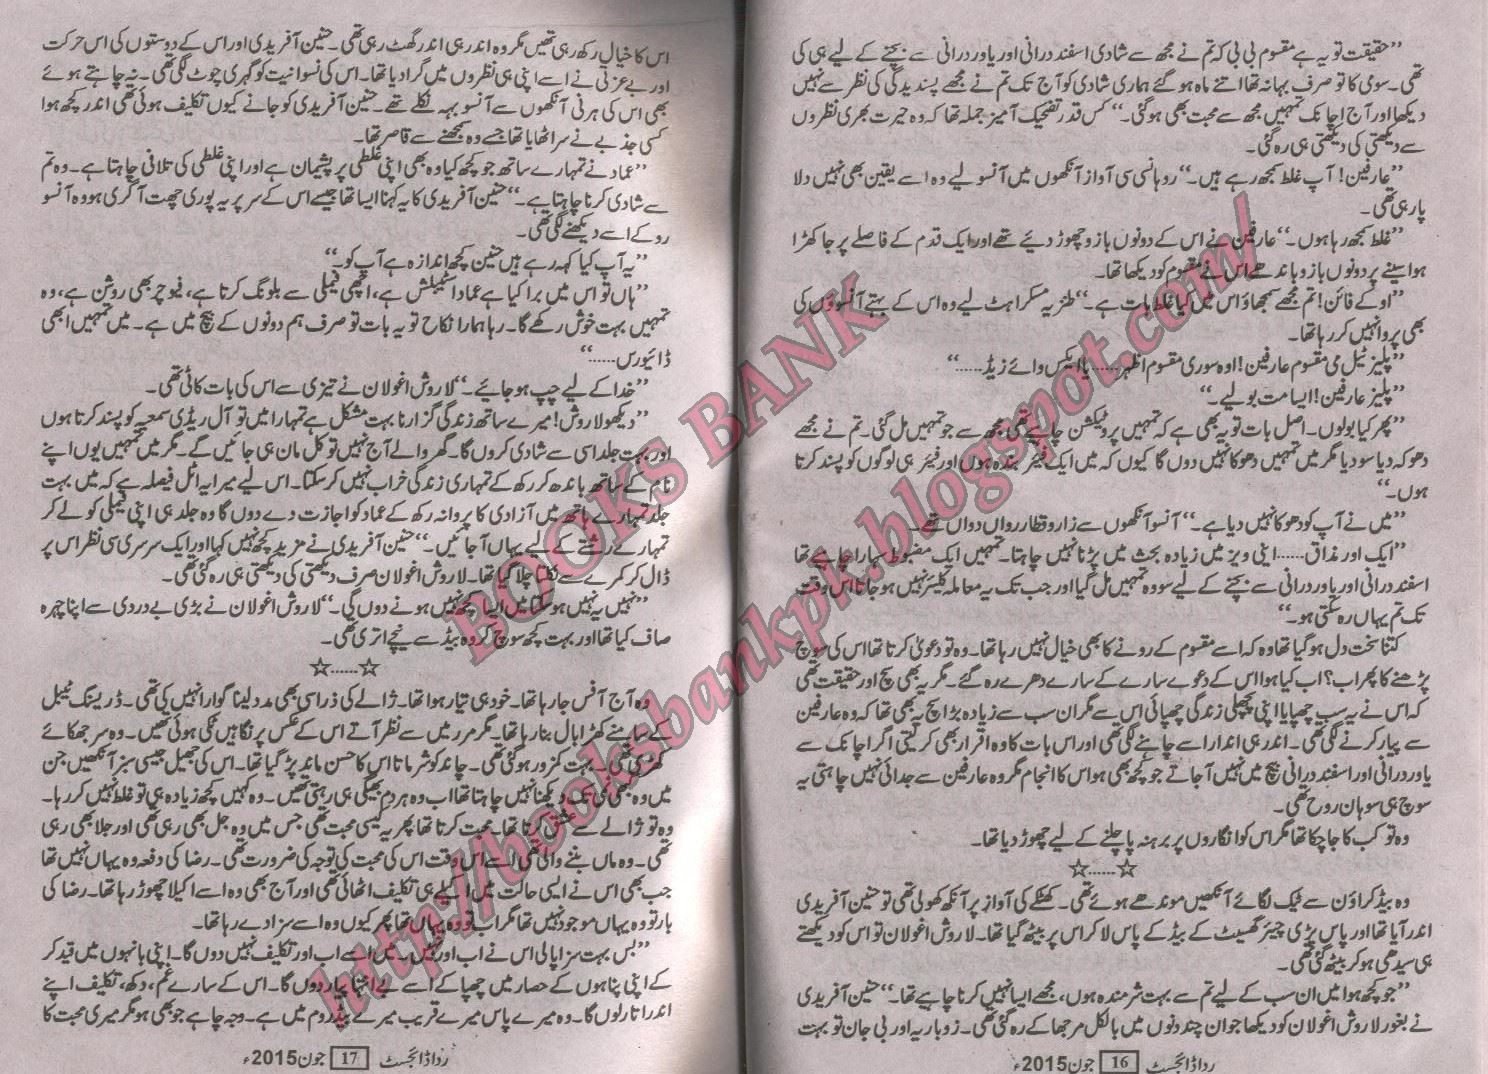 ”حقیقت تو یہ ہے مقسوم بی بی کہ تم نے مجھ سے شادی اسفند درانی اور یاور درانی سے بچنے کے لیے ہی کی
تھی۔ سومی کا تو صرف بہانہ تھا اتنے ماہ ہو گئے ہماری شادی کو آج تک تم نے مجھے پسندیدگی کی نظر سے نہیں
دیکھا اور آج اچانک تمہیں مجھ سے محبت بھی ہو گئی۔“ کس قدر تضحیک آمیز جملہ تھا کہ وہ حیرت بھری نظروں
سے دیکھتی کی دیکھتی ہی رہ گئی۔
”عارفین! آپ غلط سمجھ رہے ہیں۔“ روہانسی سی آواز آنکھوں میں آنسو لیے وہ اسے یقین بھی نہیں دلا
پا رہی تھی۔
”غلط سمجھ رہا ہوں۔“ عارفین نے اس کے دونوں بازو چھوڑ دیئے تھے اور ایک قدم کے فاصلے پر جا کھڑا
ہوا سینے پر دونوں بازو باندھے اس نے مقسوم کو دیکھا تھا۔
”اوکے فائن! تم مجھے سمجھاؤ اس میں کیا غلط بات ہے۔“ طنزیہ مسکراہٹ لیے وہ اس کے بہتے آنسوؤں کی
بھی پروا نہیں کر رہا تھا۔
”پلیز ٹیل می مقسوم عارفین! اوہ سوری مقسوم اظہر...... یا ایکس وائے زیڈ......“
”پلیز عارفین! ایسا مت بولیے۔“
”پھر کیا بولوں۔ اصل بات تو یہ بھی ہے کہ تمہیں پروٹیکشن چاہیے تھی مجھ سے جو تمہیں مل گئی۔ تم نے مجھے
دھوکہ دیا سو دیا مگر میں تمہیں دھوکا نہیں دوں گا کیوں کہ میں ایک فیئر بندہ ہوں اور فیئر ہی لوگوں کو پسند کرتا
ہوں۔“
”میں نے آپ کو دھوکا نہیں دیا ہے۔“ آنسو آنکھوں سے زار و قطار رواں دواں تھے۔
”ایک اور مذاق...... اینی ویز میں زیادہ بحث میں پڑنا نہیں چاہتا۔ تمہیں ایک مضبوط سہارا چاہیے تھا
اسفند درانی اور یاور درانی سے بچنے کے لیے سو وہ تمہیں مل گیا اور جب تک یہ معاملہ کلیئر نہیں ہو جاتا اس وقت
تک تم یہاں رہ سکتی ہو۔“
کتنا سخت دل ہو گیا تھا وہ کہ اسے مقسوم کے رونے کا بھی خیال نہیں رہا تھا۔ وہ تو دعویٰ کرتا تھا اس کی سوچ
پڑھنے کا پھر اب؟ اب کیا ہوا اس کے دعوے سارے کے سارے دھرے رہ گئے۔ مگر یہ بھی سچ اور حقیقت تھی
کہ اس نے یہ سب چھپایا اپنی پچھلی زندگی چھپائی اس سے مگر ان سب سے زیادہ بڑا سچ یہ بھی تھا کہ وہ عارفین
سے پیار کرنے لگی تھی۔ اندر ہی اندر اسے چاہنے لگی تھی اور اس بات کا وہ اقرار بھی کر لیتی اگر اچانک سے
یاور درانی اور اسفند درانی بیچ میں نہیں آ جاتے جو کچھ بھی ہوا اس کا انجام مگر وہ عارفین سے جدائی نہیں چاہتی یہ
سوچ ہی سوہان روح تھی۔
وہ تو کب کا جا چکا تھا مگر اس کو انگاروں پر برہنہ پا چلنے کے لیے چھوڑ دیا تھا۔
☆......☆
وہ بیڈ کراؤن سے ٹیک لگائے آنکھیں موندھے ہوئے تھی۔ کھٹکے کی آواز پر آنکھ کھولی تھی تو حنین آفریدی
اندر آیا تھا اور پاس پڑی چیئر گھسیٹ کے بیڈ کے پاس لا کر اس پر بیٹھ گیا تھا۔ لاروش اغولان تو اس کو دیکھتے
ہی سیدھی ہو کر بیٹھ گئی تھی۔
”جو کچھ ہوا میں ان سب کے لیے تم سے بہت شرمندہ ہوں، مجھے ایسا نہیں کرنا چاہیے تھا۔“ حنین آفریدی
نے بغور لاروش اغولان کو دیکھا جو ان چند دونوں میں بالکل مرجھا کے رہ گئی تھی۔ زوباریہ اور بی جان تو بہت
رداڈائجسٹ 16 جون 2015ء
اس کا خیال رکھ رہی تھیں مگر وہ اندر ہی اندر گھٹ رہی تھی۔ حنین آفریدی اور اس کے دوستوں کی اس حرکت
اور بے عزتی نے اسے اپنی ہی نظروں میں گرا دیا تھا۔ اس کی نسوانیت کو گہری چوٹ لگی تھی۔ نہ چاہتے ہوئے
بھی اس کی ہرنی آنکھوں سے آنسو بہہ نکلے تھے۔ حنین آفریدی کو جانے کیوں تکلیف ہوئی تھی اندر کچھ ہوا
کسی جذبے نے سر اٹھایا تھا جسے وہ سمجھنے سے قاصر تھا۔
”عماد نے تمہارے ساتھ جو کچھ کیا وہ بھی اپنی غلطی پر پشیمان ہے اور اپنی غلطی کی تلافی چاہتا ہے۔ وہ تم
سے شادی کرنا چاہتا ہے۔“ حنین آفریدی کا یہ کہنا ایسا تھا جیسے اس کے سر پر یہ پوری چھت آ گری ہو وہ آنسو
روکے اسے دیکھنے لگی تھی۔
”یہ آپ کیا کہہ رہے ہیں حنین کچھ اندازہ ہے آپ کو۔“
”ہاں تو اس میں برا کیا ہے عماد اسٹیبلش ہے، اچھی فیملی سے بلونگ کرتا ہے، فیوچر بھی روشن ہے، وہ
تمہیں بہت خوش رکھے گا۔ رہا ہمارا نکاح تو یہ بات تو صرف ہم دونوں کے بیچ میں ہے۔ میں تمہیں ابھی
ڈائیورس......“
”خدا کے لیے چپ ہو جائیے۔“ لاروش اغولان نے تیزی سے اس کی بات کاٹی تھی۔
”دیکھو لاروش! میرے ساتھ زندگی گزارنا بہت مشکل ہے تمہارا میں تو آل ریڈی سمعیہ کو پسند کرتا ہوں
اور بہت جلد اسی سے شادی کروں گا۔ گھر والے آج نہیں تو کل مان ہی جائیں گے۔ مگر میں تمہیں یوں اپنے
نام کے ساتھ باندھ کر رکھ کے تمہاری زندگی خراب نہیں کر سکتا۔ اس لیے میرا یہ اٹل فیصلہ ہے کہ میں بہت
جلد تمہارے ہاتھ میں آزادی کا پروانہ رکھ کے عماد کو اجازت دے دوں گا وہ جلد ہی اپنی فیملی کو لے کر
تمہارے رشتے کے لیے یہاں آ جائیں۔“ حنین آفریدی نے مزید کچھ نہیں کہا اور ایک سرسری سی نظر اس پر
ڈال کر کمرے سے نکلتا چلا گیا تھا۔ لاروش اغولان صرف دیکھتی کی دیکھتی ہی رہ گئی تھی۔
”نہیں یہ نہیں ہو سکتا میں ایسا کچھ نہیں ہونے دوں گی۔“ لاروش اغولان نے بڑی بے دردی سے اپنا چہرہ
صاف کیا تھا اور بہت کچھ سوچ کر وہ بیڈ سے نیچے اتری تھی۔
☆......☆
وہ آج آفس جا رہا تھا۔ خود ہی تیار ہوا تھا۔ ژالے کی ذرا سی بھی مدد لینا گوارا نہیں کی تھی۔ ڈریسنگ ٹیبل
کے سامنے کھڑا بال بنا رہا تھا۔ مگر مرر میں سے نظر آتے اس کے عکس پر نگاہیں ٹکی ہوئی تھیں۔ وہ سر جھکائے
کھڑی تھی۔ بہت کمزور ہو گئی تھی۔ چاند کو شرماتا اس کا حسن ماند پڑ گیا تھا۔ اس کی جھیل جیسی سبز آنکھیں جن
میں وہ کبھی نمی تک دیکھنا نہیں چاہتا تھا اب وہ ہر دم بھیگی ہی رہتی تھیں۔ وہ کہیں کچھ زیادہ ہی تو غلط نہیں کر رہا۔
وہ تو ژالے سے عشق کرتا تھا۔ محبت کرتا تھا پھر یہ کیسی محبت تھی جس میں وہ جل بھی رہی تھی اور جلا بھی رہی
تھی۔ وہ ماں بننے والی تھی اسے اس وقت اس کی محبت کی توجہ کی ضرورت تھی۔ رضا کی دفعہ وہ یہاں نہیں تھا
جب بھی اس نے ایسی حالت میں اکیلے ہی تکلیف اٹھائی تھی اور آج بھی وہ اسے اکیلا چھوڑ رہا تھا۔ رضا کی
بار تو وہ یہاں موجود نہیں تھا مگر اب تو وہ یہاں تھا پھر کیوں وہ اسے سزا دے رہا تھا۔
”بس بہت سزا پالی اس نے اب اور نہیں۔ میں اسے اب اور تکلیف نہیں دوں گا۔ اپنی بانہوں میں قید کر
کے اپنی پناہوں کے حصار میں چھپا کے اسے بے انتہا پیار دوں گا۔ اس کے سارے غم، دکھ، تکلیف اپنے
اندر اتار لوں گا۔ وہ میرے پاس میرے قریب میرے بیڈ روم میں ہے۔ وجہ چاہے جو بھی ہو مگر میری محبت کا
رداڈائجسٹ 17 جون 2015ء
BOOKS BANK
http://booksbankpk.blogspot.com/